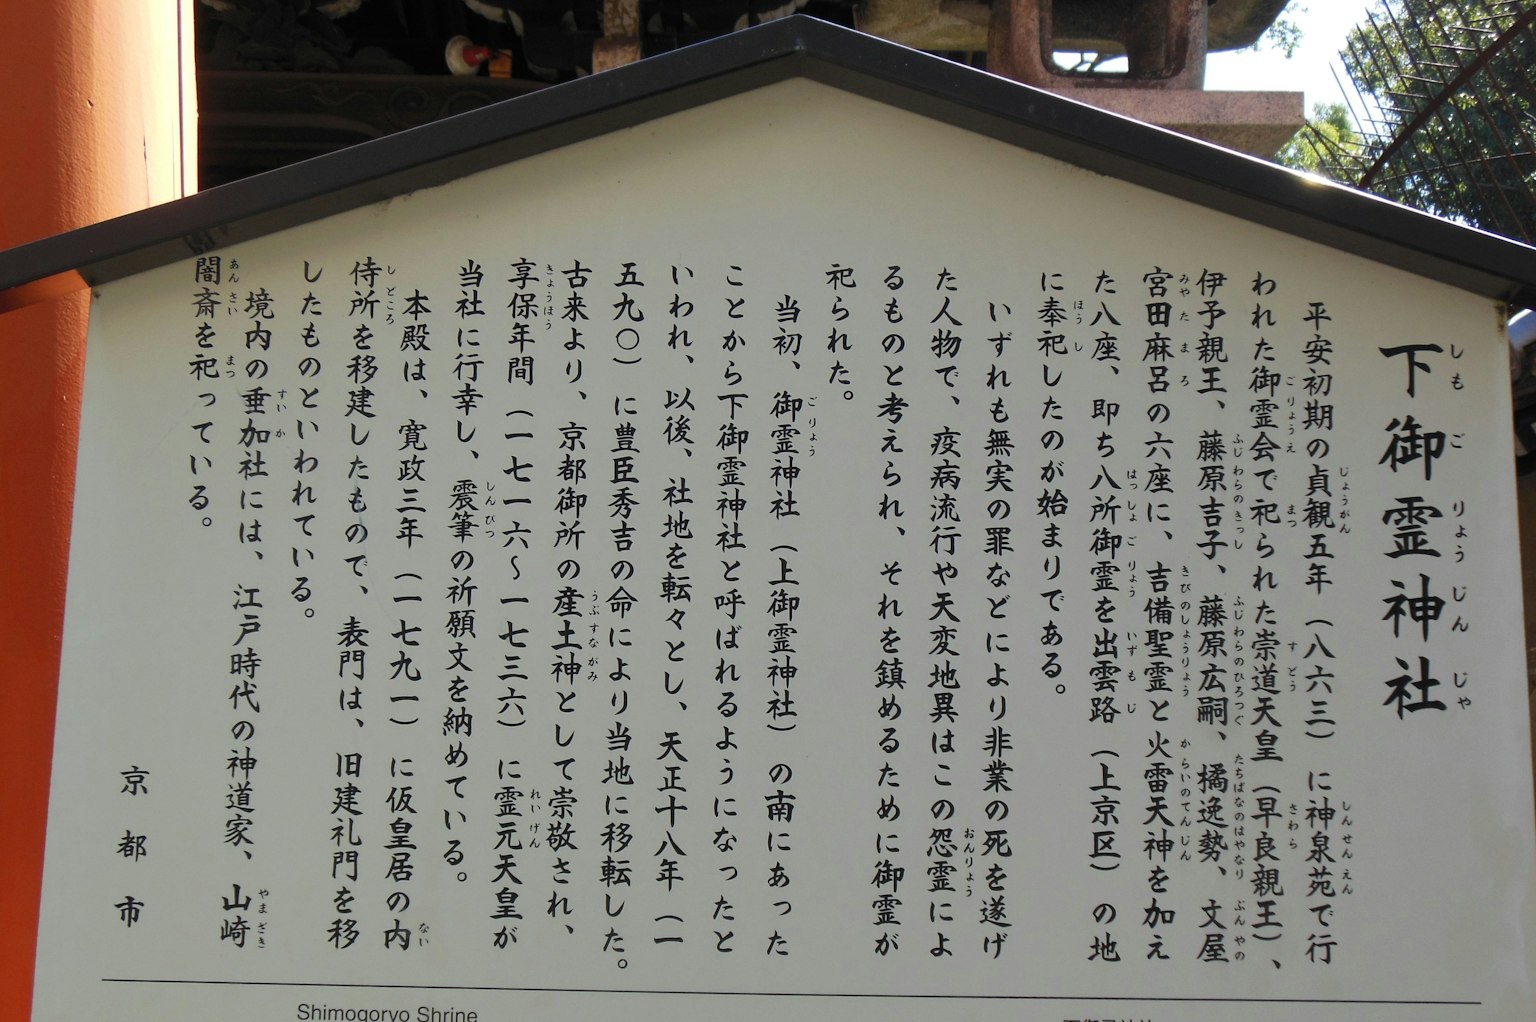 下御霊神社
平安初期の貞観五年（八六三）に神泉苑で行
われた御霊会で祀られた崇道天皇（早良親王）、
伊予親王、藤原吉子、藤原広嗣、橘逸勢、文屋
宮田麻呂の六座に、吉備聖霊と火雷天神を加え
た八座、即ち八所御霊を出雲路（上京区）の地
に奉祀したのが始まりである。
いずれも無実の罪などにより非業の死を遂げ
た人物で、疫病流行や天変地異はこの怨霊によ
るものと考えられ、それを鎮めるために御霊が
祀られた。
当初、御霊神社（上御霊神社）の南にあった
ことから下御霊神社と呼ばれるようになったと
いわれ、以後、社地を転々とし、天正十八年（一
五九〇）に豊臣秀吉の命により当地に移転した。
古来より、京都御所の産土神として崇敬され、
享保年間（一七一六～一七三六）に霊元天皇が
当社に行幸し、震筆の祈願文を納めている。
本殿は、寛政三年（一七九一）に仮皇居の内
侍所を移建したもので、表門は、旧建礼門を移
したものといわれている。
境内の垂加社には、江戸時代の神道家、山崎
闇斎を祀っている。
京都市
Shimogoryo Shrine